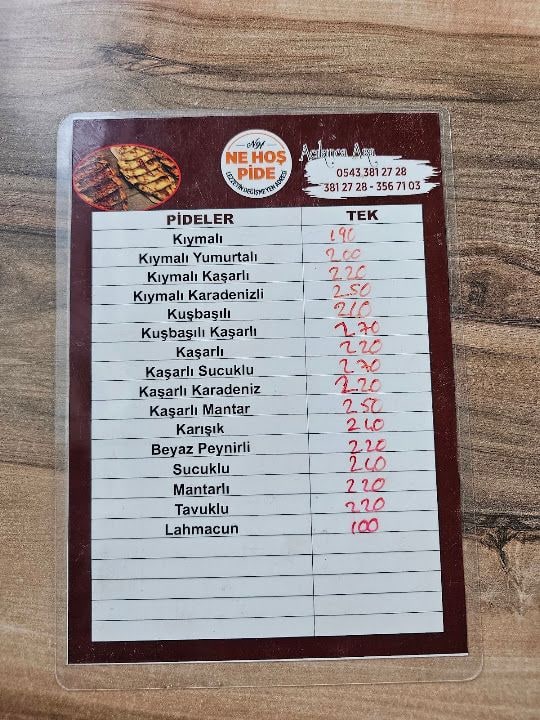 NH
NE HOŞ
PİDE
LEZZETİN DEĞİŞMEYEN ADRESİ
Acıkınca Ara
0543 381 27 28
381 27 28 - 356 71 03
PİDELER TEK
Kıymalı 190
Kıymalı Yumurtalı 200
Kıymalı Kaşarlı 220
Kıymalı Karadenizli 250
Kuşbaşılı
Kuşbaşılı Kaşarlı 270
Kaşarlı 220
Kaşarlı Sucuklu 270
Kaşarlı Karadeniz 220
Kaşarlı Mantar 250
Karışık 240
Beyaz Peynirli 220
Sucuklu 240
Mantarlı 220
Tavuklu 220
Lahmacun 100